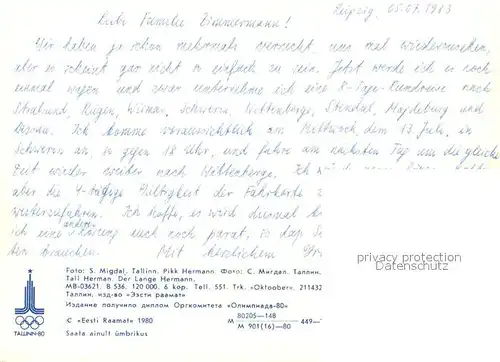 Leipzig, 05.07.1983
Liebe Familie Zimmermann!
Wir haben ja schon mehrmals versucht, uns mal wiederzusehen,
aber es scheint gar nicht so einfach zu sein. Jetzt werde ich es noch
einmal wagen und zwar unternehme ich eine 8-Tage-Rundreise nach
Stralsund, Rügen, Wismar, Schwerin, Wittenberge, Stendal, Magdeburg und
Dessau. Ich komme voraussichtlich am Mittwoch, dem 13. Juli, in
Schwerin an, so gegen 18 Uhr, und fahre am nächsten Tag um die gleiche
Zeit wieder weiter nach Wittenberge. Ich
aber die 4-tägige Gültigkeit der Fahrkarte
weiterzufahren. Ich hoffe, es wird diesmal
ich eine andere Lösung auch noch parat, so daß
brauchen. Mit herzlichem
privacy protection
Datenschutz
Foto: S. Migdal, Tallinn. Pikk Hermann. Фото: С. Мигдал. Таллин.
Tall Herman. Der Lange Hermann.
MB-03621. B 536. 120 000. 6 kop. Tell. 551. Trk. «Oktoober», 211432
Таллин, изд-во «Ээсти раамат»
Издание получило диплом Оргкомитета «Олимпиада-80»
© «Eesti Raamat» 1980
M 80205—148
M 901(16)—80
449—
Saata ainult ümbrikus
TALLINN•80